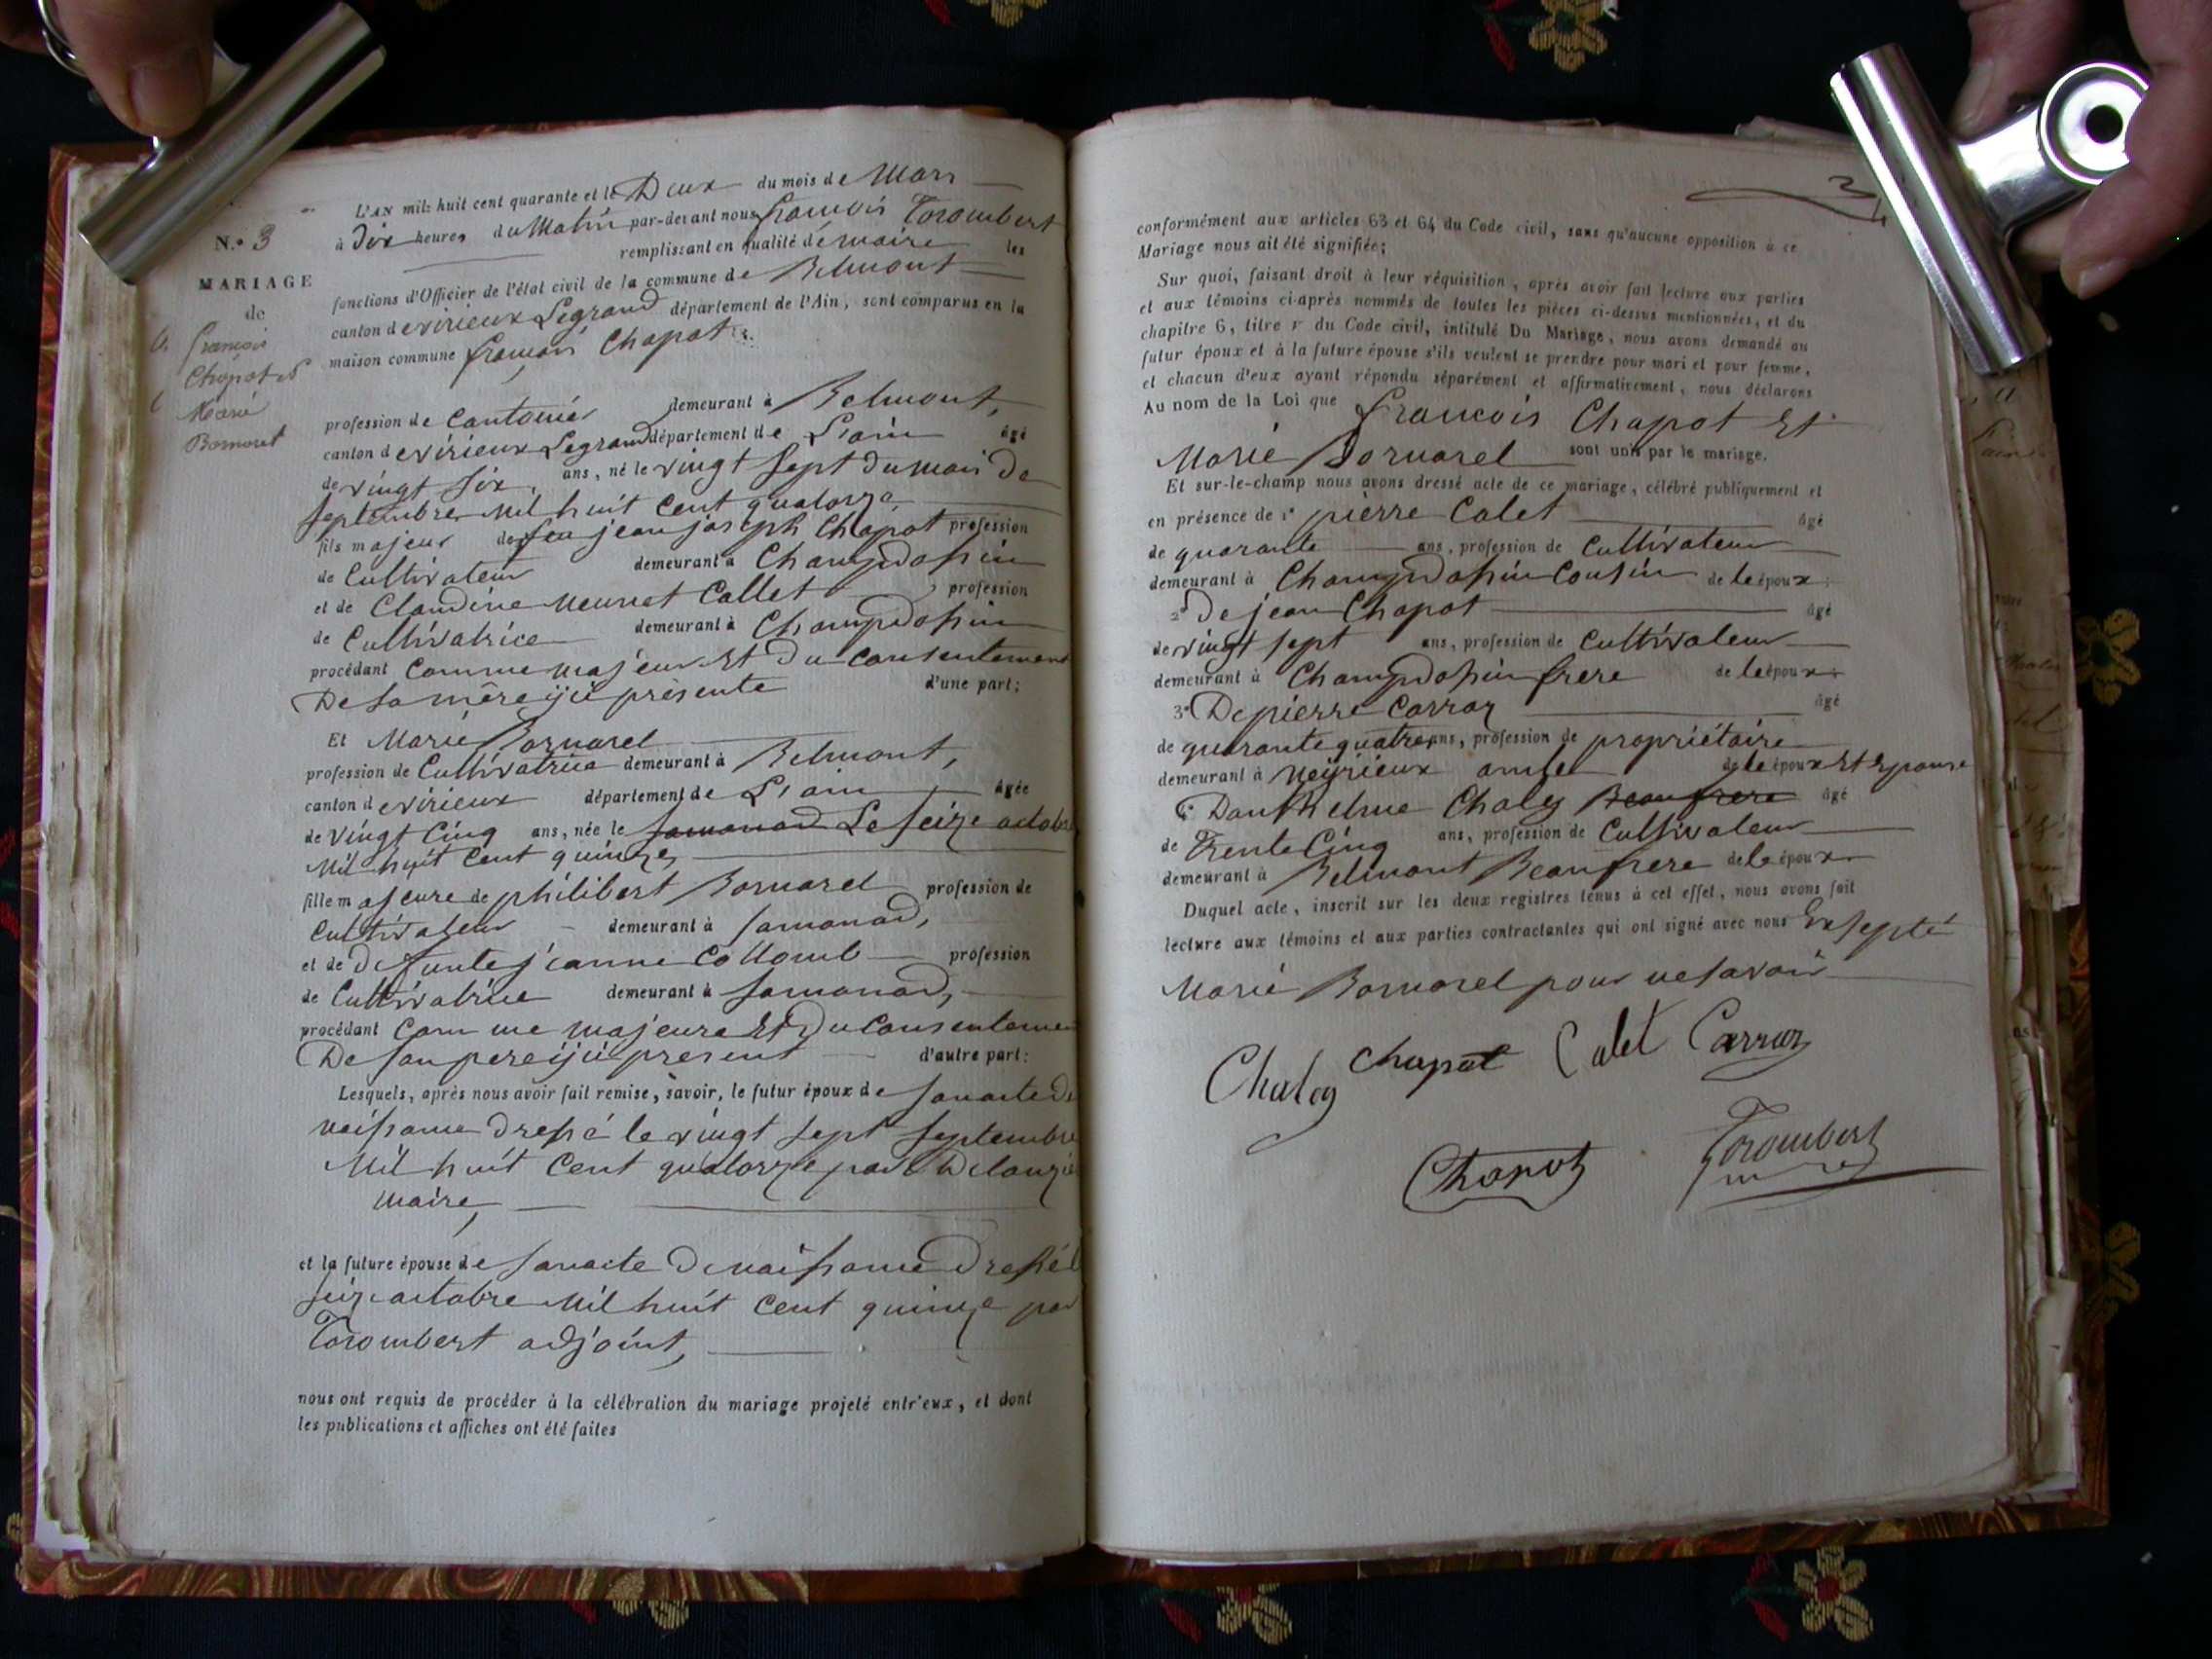 N.° 3
MARIAGE
de
François
Chapot et
Marie
Bornarel
L'AN mil huit cent quarante et le Deux du mois de Mars
à Dix heures du Matin par-devant nous françois Torombert
remplissant en qualité de maire les
fonctions d'Officier de l'état civil de la commune de Belmont
canton de virieux Legrand département de l'Ain, sont comparus en la
maison commune françois Chapot
profession de Cantonier demeurant à Belmont,
canton de virieux Legrand département de L'ain âgé
de vingt six, ans, né le vingt Sept du mois de
Septembre Mil huit Cent quatorze
fils majeur de feu jean joseph Chapot profession
de Cultivateur demeurant à Champdossin
et de Claudine Meunet Callet profession
de Cultivatrice demeurant à Champdossin
procédant Comme majeur Et du Consentement
De Sa mère ijci présente d'une part;
Et Marie Bornarel
profession de Cultivatrice demeurant à Belmont,
canton de virieux département de L'ain âgée
de Vingt Cinq ans, née le Samonod Le Seize actobre
Mil huit Cent quinze,
fille majeure de philibert Bornarel profession de
Cultivateur demeurant à Samonod,
et de Defunte jeanne Collomb profession
de Cultivatrice demeurant à Samonod,
procédant Comme majeure Et Du Consentemen
De Son pere ijci present d'autre part:
Lesquels, après nous avoir fait remise, savoir, le futur époux de Son acte De
naissance Dressé le vingt Sept Septembre
Mil huit Cent quatorze par
maire,
et la future épouse de Son acte De naissance Dressé l
Seize actobre Mil huit Cent quinze par
Torombert adjoint,
nous ont requis de procéder à la célébration du mariage projeté entr'eux, et dont
les publications et affiches ont été faites
conformément aux articles 63 et 64 du Code civil, sans qu'aucune opposition à ce
Mariage nous ait été signifiée;
Sur quoi, faisant droit à leur réquisition, après avoir fait lecture aux parties
et aux témoins ci-après nommés de toutes les pièces ci-dessus mentionnées, et du
chapitre 6, titre v du Code civil, intitulé Du Mariage, nous avons demandé au
futur époux et à la future épouse s'ils veulent se prendre pour mari et pour femme,
et chacun d'eux ayant répondu séparément et affirmativement, nous déclarons
Au nom de la Loi que François Chapot Et
Marie Bornarel sont unis par le mariage.
Et sur-le-champ nous avons dressé acte de ce mariage, célébré publiquement et
en présence de 1° pierre Calet âgé
de quarante ans, profession de Cultivateur
demeurant à Champdossin Cousin de le époux
2° De jean Chapot âgé
de vingt sept ans, profession de Cultivateur
demeurant à Champdossin frere de le époux
3° De pierre Carraz âgé
de quarante quatre ans, profession de propriétaire
demeurant à Neyrieux amis de le époux Et Epouse
4° Danthelme Chaley Beaufrere âgé
de Trente Cinq ans, profession de Cultivateur
demeurant à Belmont Beaufrere de le époux
Duquel acte, inscrit sur les deux registres tenus à cet effet, nous avons fait
lecture aux témoins et aux parties contractantes qui ont signé avec nous Exsepté
Marie Bornarel pour ne savoir
Chaley Chapot Calet Carraz
Chapot Torombert